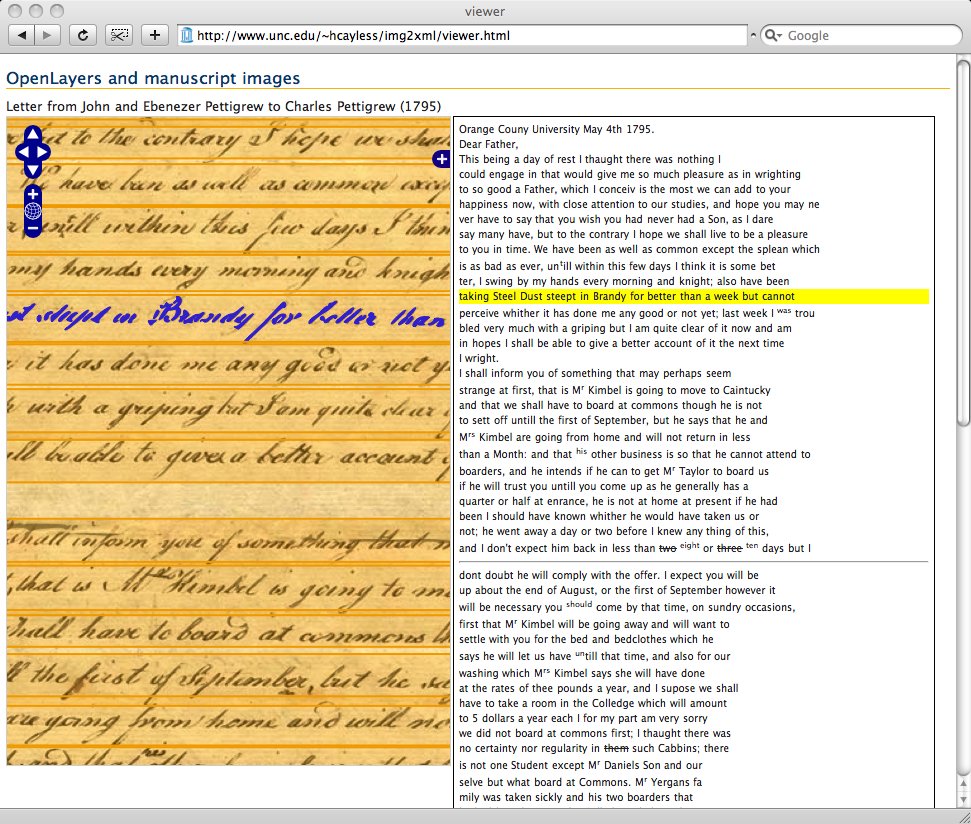 viewer
http://www.unc.edu/~hcayless/img2xml/viewer.html
Google
OpenLayers and manuscript images
Letter from John and Ebenezer Pettigrew to Charles Pettigrew (1795)
but to the contrary I hope we shall
We have been as well as common
until within this few days I thin
my hands every morning and knigh
st steept in Brandy for better than
it has done me any good or not y
with a griping but I am quite clear
ll be able to give a better account
shall inform you of something that
that is Mr Kimbel is going to m
shall have to board at commons
the first of September, but he
are going from home and will no
and that his
Orange Couny University May 4th 1795.
Dear Father,
This being a day of rest I thaught there was nothing I
could engage in that would give me so much pleasure as in wrighting
to so good a Father, which I conceiv is the most we can add to your
happiness now, with close attention to our studies, and hope you may ne
ver have to say that you wish you had never had a Son, as I dare
say many have, but to the contrary I hope we shall live to be a pleasure
to you in time. We have been as well as common except the splean which
is as bad as ever, until within this few days I think it is some bet
ter, I swing by my hands every morning and knight; also have been
taking Steel Dust steept in Brandy for better than a week but cannot
perceive whither it has done me any good or not yet; last week I was trou
bled very much with a griping but I am quite clear of it now and am
in hopes I shall be able to give a better account of it the next time
I wright.
I shall inform you of something that may perhaps seem
strange at first, that is Mr Kimbel is going to move to Caintucky
and that we shall have to board at commons though he is not
to sett off untill the first of September, but he says that he and
Mrs Kimbel are going from home and will not return in less
than a Month: and that his other business is so that he cannot attend to
boarders, and he intends if he can to get Mr Taylor to board us
if he will trust you untill you come up as he generally has a
quarter or half at enrance, he is not at home at present if he had
been I should have known whither he would have taken us or
not; he went away a day or two before I knew any thing of this,
and I don't expect him back in less than two eight or three ten days but I
dont doubt he will comply with the offer. I expect you will be
up about the end of August, or the first of September however it
will be necessary you should come by that time, on sundry occasions,
first that Mr Kimbel will be going away and will want to
settle with you for the bed and bedclothes which he
says he will let us have untill that time, and also for our
washing which Mrs Kimbel says she will have done
at the rates of thee pounds a year, and I supose we shall
have to take a room in the Colledge which will amount
to 5 dollars a year each I for my part am very sorry
we did not board at commons first; I thaught there was
no certainty nor regularity in them such Cabbins; there
is not one Student except Mr Daniels Son and our
selve but what board at Commons. Mr Yergans fa
mily was taken sickly and his two boarders that